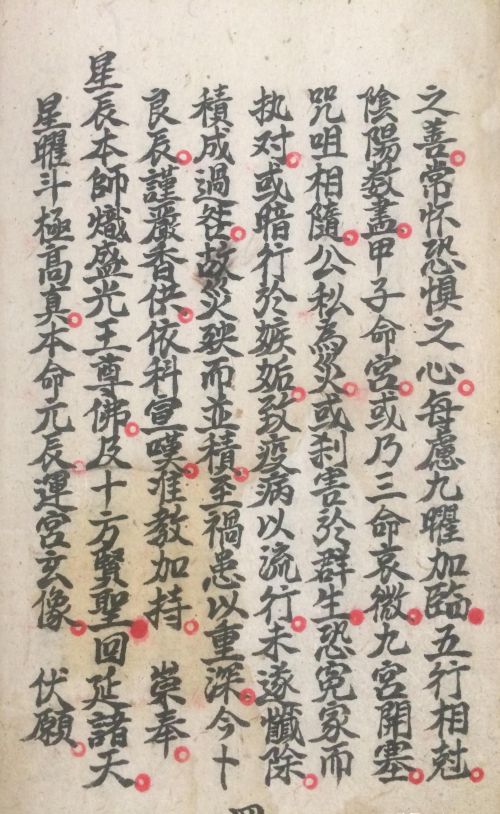 之善常怀恐惧之心每慮九曜加臨五行相尅
陰陽数盡甲子命宮或乃三命哀微九宮開塞
咒咀相隨公私為災或刹害於群生恐寃家而
执对或暗行於嫉妬致疫病以流行未遂懺除
積成過咎故災殃而並積至禍患以重深今卜
良辰謹嚴香供依科宣嘆准教加持 崇奉
星辰本師熾盛光王尊佛及十方賢聖回延諸天
星曜斗極高真本命亢辰運宮玄像 伏願